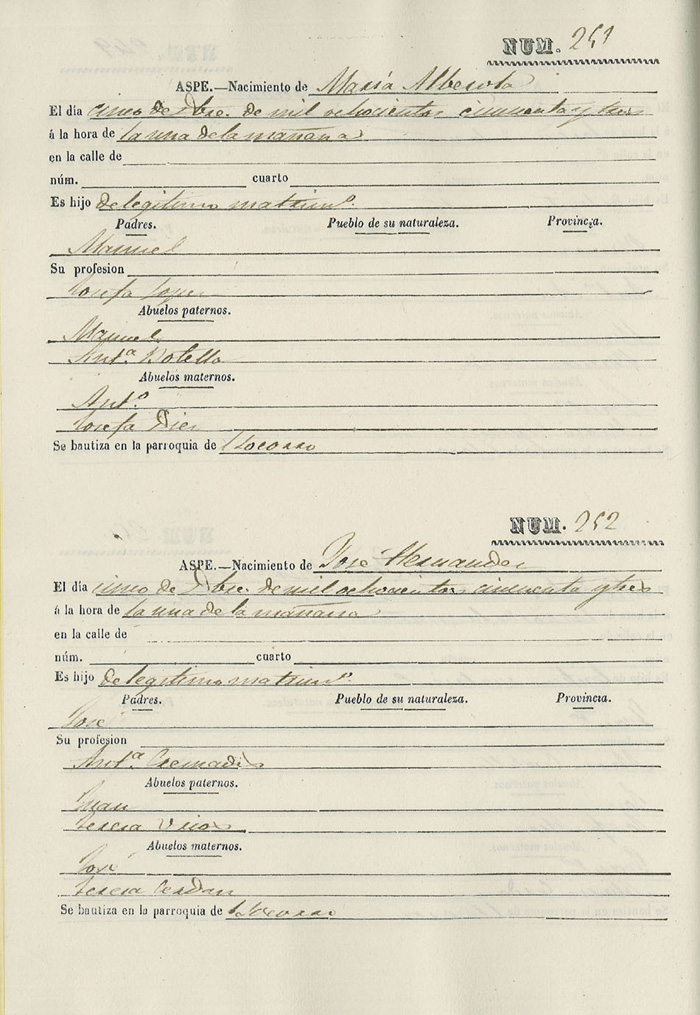 NUM. 251
ASPE.—Nacimiento de María Alberola
El día cinco de Dbre. de mil ochocientos cincuenta y tres
á la hora de la una de la mañana
en la calle de
núm. cuarto
Es hijo de legitimo matrimº.
Padres. Pueblo de su naturaleza. Provincia.
Manuel
Su profesion
Josefa Lopez
Abuelos paternos.
Manuel
Antª. Botella
Abuelos maternos.
Antº
Josefa Dies
Se bautiza en la parroquia de Socorro
NUM. 252
ASPE.—Nacimiento de José Hernandes
El día cinco de Dbre. de mil ochocientos cincuenta y tres
á la hora de la una de la mañana
en la calle de
núm. cuarto
Es hijo de legitimo matrimº.
Padres. Pueblo de su naturaleza. Provincia.
José
Su profesion
Antª. Cremades
Abuelos paternos.
Juan
Teresa
Abuelos maternos.
José
Teresa Cerdan
Se bautiza en la parroquia de Socorro